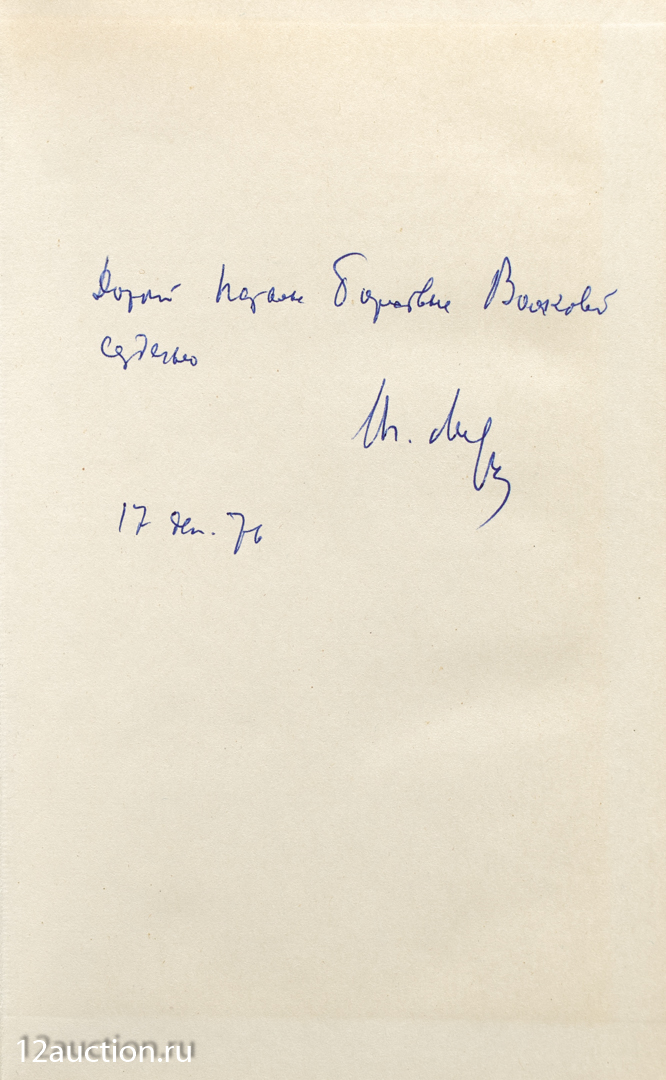 Дорогой Наталье Борисовне Волковой
сердечно
17 дек. 76
12auction.ru